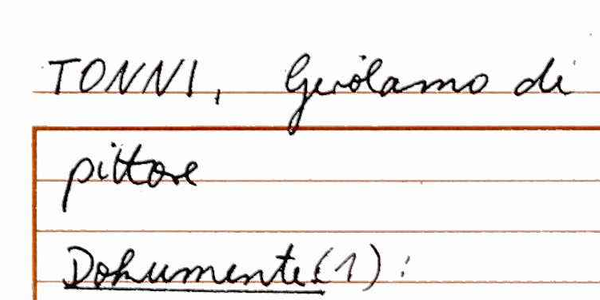 TONNI, Girolamo di
pittore
Dokumente (1) :